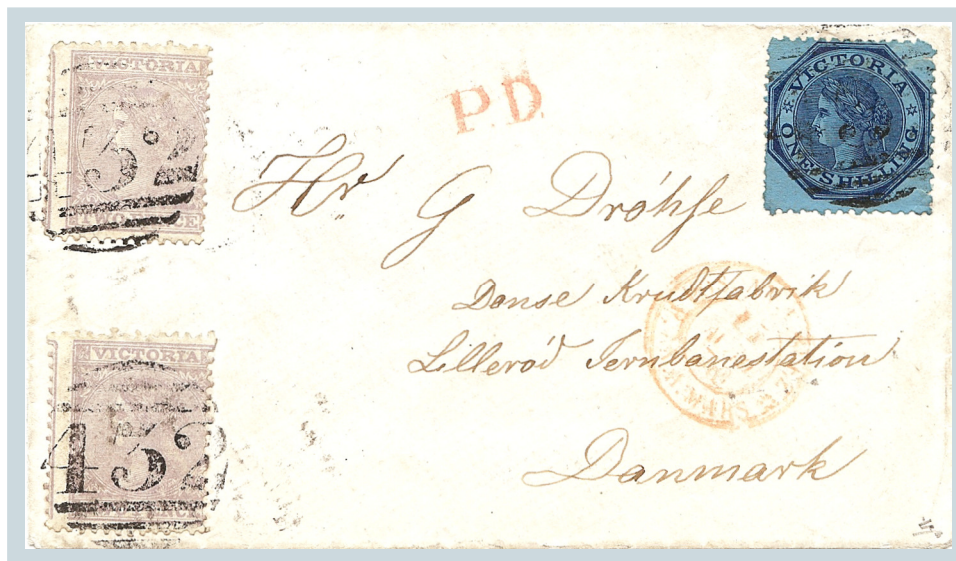 VICTORIA
432
TWO PENCE
P.D.
VICTORIA
ONE SHILLING
Hr G Dröhse
Donse Krudtfabrik
Lilleröd Jernbanestation
Danmark
VICTORIA
432
MARS